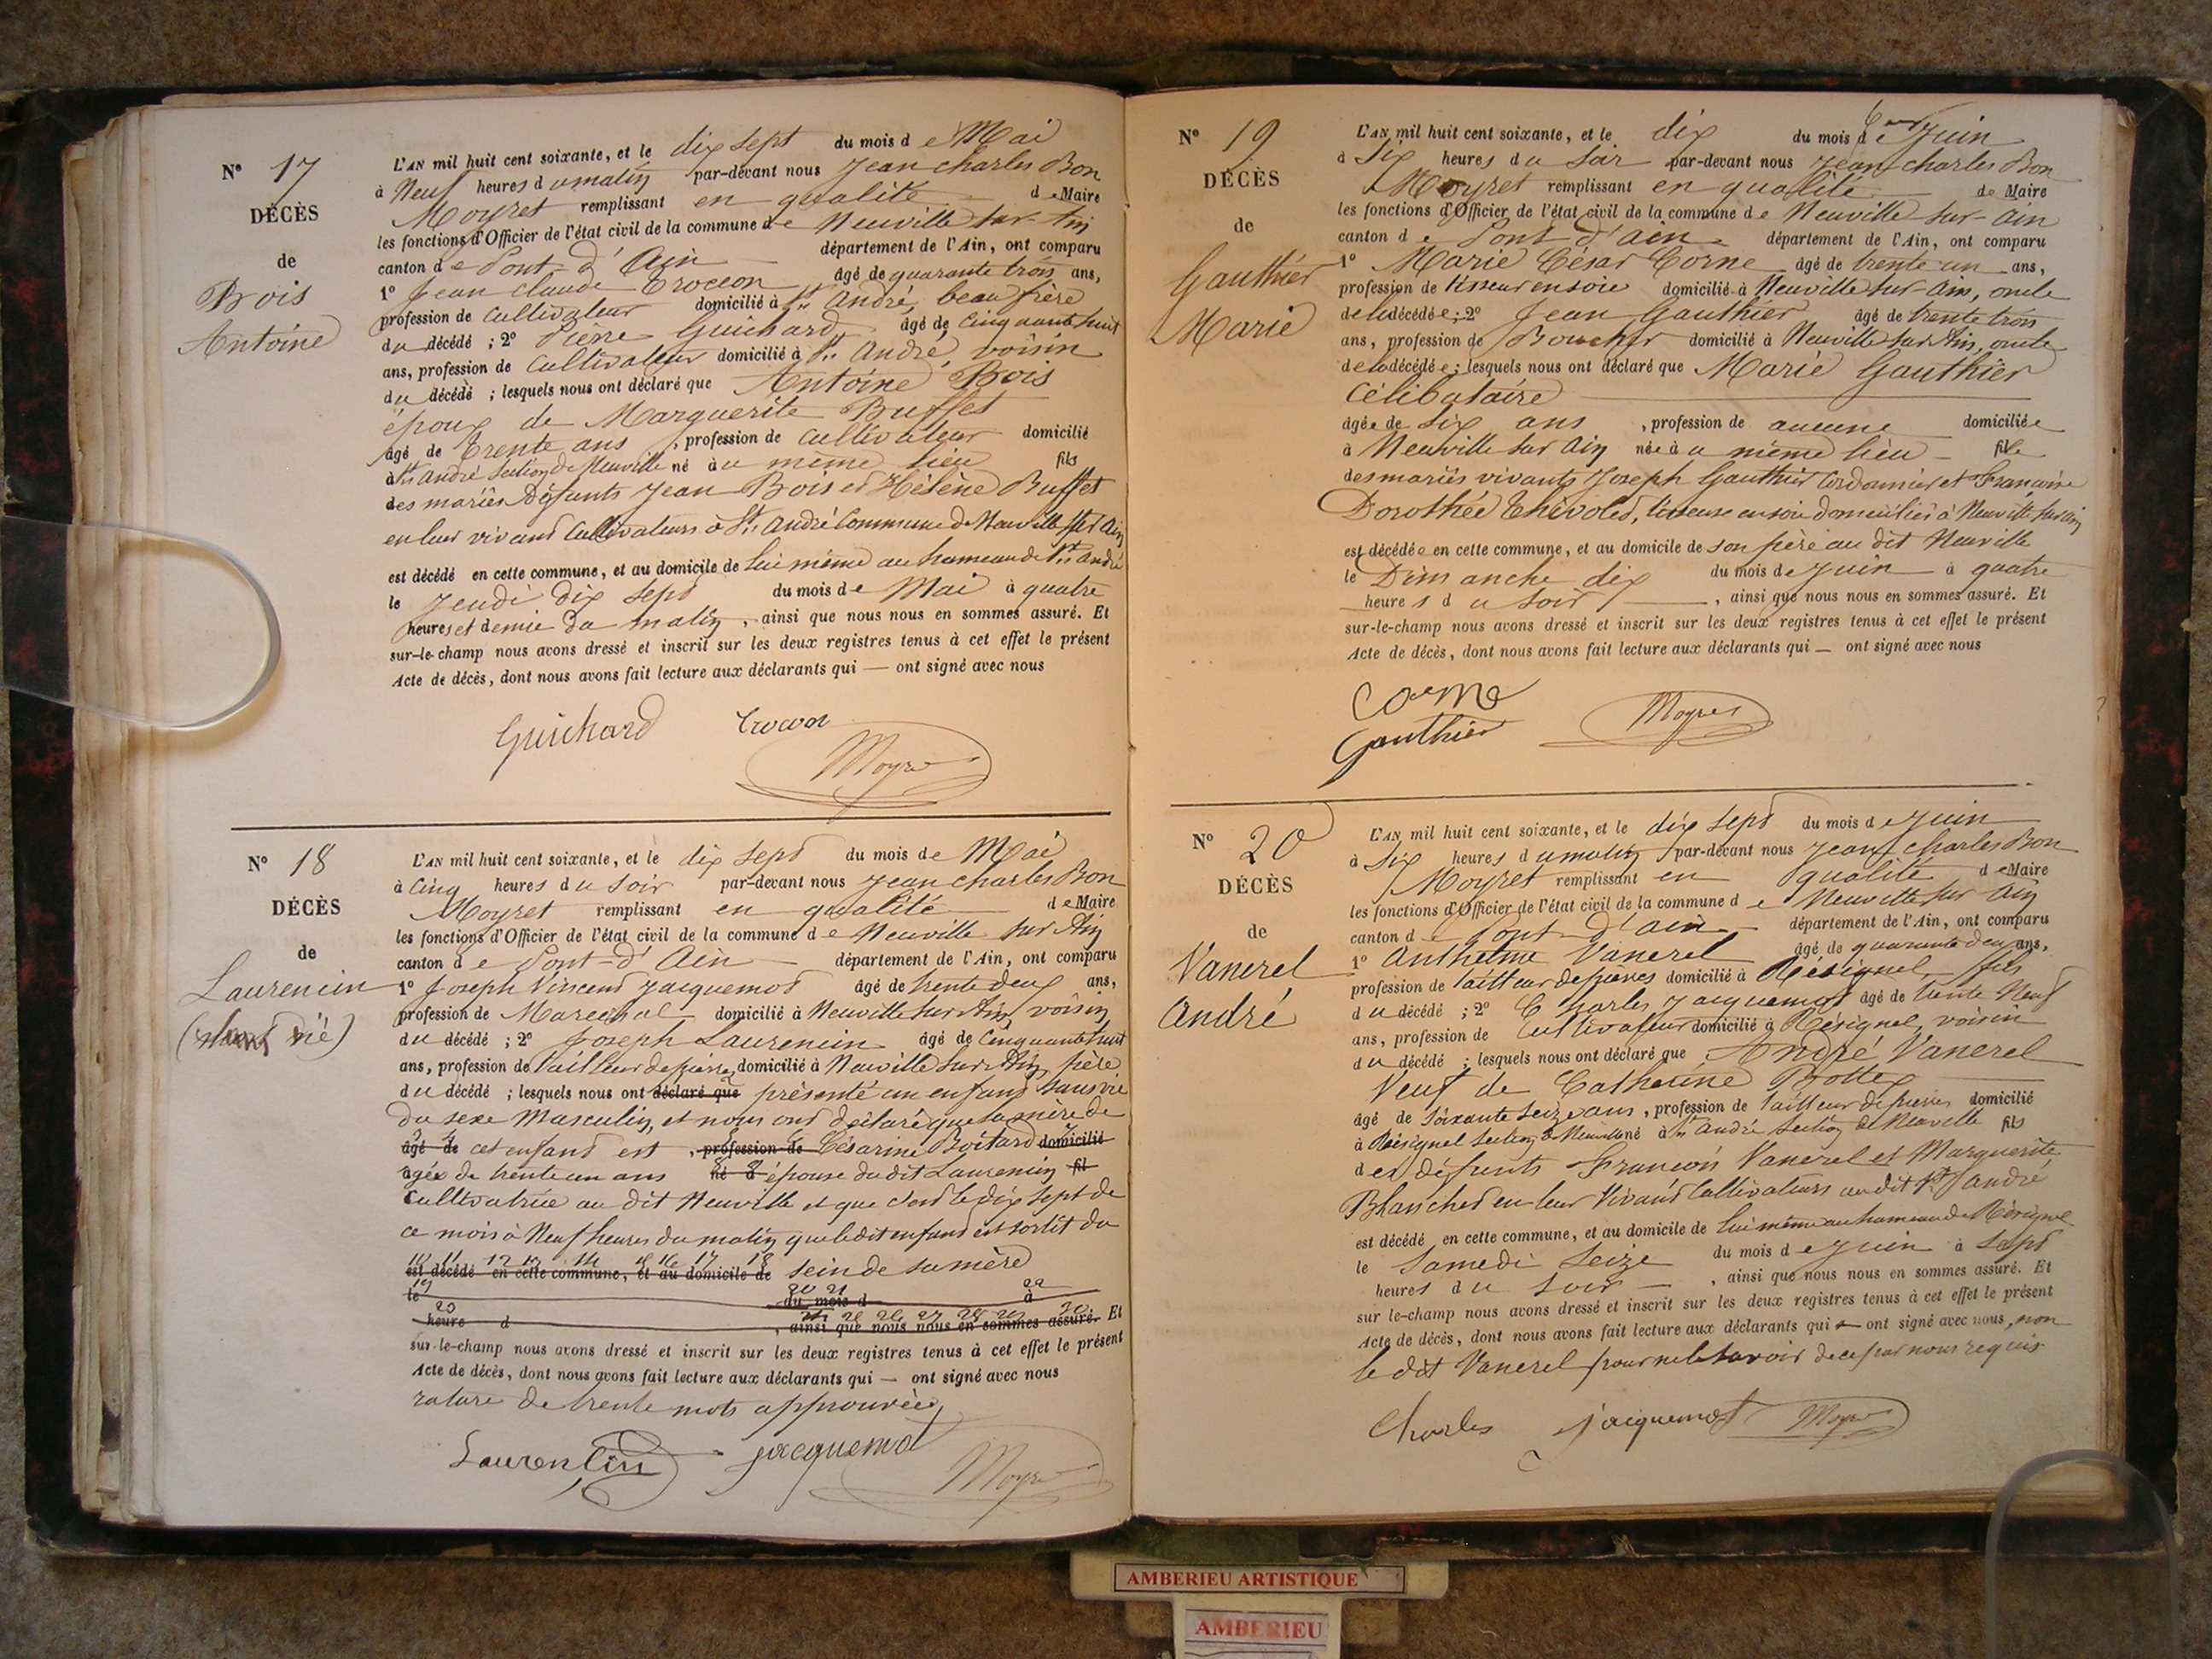 N° 17
DÉCÈS
de
Bois
Antoine
L'AN mil huit cent soixante, et le dix sept du mois de Mai
à Neuf heures du matin par-devant nous Jean charles Bon
Moyret remplissant en qualité de Maire
les fonctions d'Officier de l'état civil de la commune de Neuville sur Ain
canton de Pont-d'Ain département de l'Ain, ont comparu
1° Jean claude Trocon âgé de quarante trois ans,
profession de Cultivateur domicilié à St. André, beau frère
du décédé ; 2° Pierre Guichard âgé de Cinquante huit
ans, profession de Cultivateur domicilié à St. André voisin
du décédé ; lesquels nous ont déclaré que Antoine Bois
époux de Marguerite Buffet
âgé de Trente ans , profession de Cultivateur domicilié
à St André Section de Neuville né au même lieu fils
des mariés Défunts Jean Bois et Hélène Buffet
en leur vivant Cultivateurs à St. André Commune de Neuville sur Ain
est décédé en cette commune, et au domicile de Lui même au hameau de St. André
le Jeudi dix sept du mois de Mai à quatre
heures et demie du matin , ainsi que nous nous en sommes assuré. Et
sur-le-champ nous avons dressé et inscrit sur les deux registres tenus à cet effet le présent
Acte de décès, dont nous avons fait lecture aux déclarants qui — ont signé avec nous
Guichard Trocon
Moyret
N° 18
DÉCÈS
de
Laurencin
né)
L'AN mil huit cent soixante, et le dix sept du mois de Mai
à Cinq heures du Soir par-devant nous Jean charles Bon
Moyret remplissant en qualité de Maire
les fonctions d'Officier de l'état civil de la commune de Neuville sur Ain
canton de Pont-d'Ain département de l'Ain, ont comparu
1° Joseph Vincent Jacquemot âgé de trente deux ans,
profession de Marechal domicilié à Neuville sur Ain, voisin
du décédé ; 2° Joseph Laurencin âgé de Cinquante huit
ans, profession de Tailleur de pierre domicilié à Neuville sur Ain, père
du décédé ; lesquels nous ont déclaré que présenté un enfant sans vie
Du sexe Masculin, et nous ont déclaré que la mère de
âgé de cet enfant est , profession de Césarine Boitard domicilié
agée de trente un ans né à épouse du dit Laurencin fil
Cultivatrice au dit Neuville et que c'est le dix sept de
ce mois à Neuf heures du matin que le dit enfant est sortit du
10 11 12 13 14 15 16 17 18
est décédé en cette commune, et au domicile de sein de sa mère
19 20 21 22
le du mois d à
23 24 25 26 27 28 29 30
heure d , ainsi que nous nous en sommes assuré. Et
sur-le-champ nous avons dressé et inscrit sur les deux registres tenus à cet effet le présent
Acte de décès, dont nous avons fait lecture aux déclarants qui — ont signé avec nous
rature de trente mots approuvée,
Laurencin jacquemot
Moyret
N° 19
DÉCÈS
de
Gauthier
Marie
L'AN mil huit cent soixante, et le dix du mois de Juin
à Six heures du Soir par-devant nous Jean charles Bon
Moyret remplissant en qualité de Maire
les fonctions d'Officier de l'état civil de la commune de Neuville sur-ain
canton de Pont d'ain département de l'Ain, ont comparu
1° Marie César Corne âgé de trente un ans,
profession de tisseur en soie domicilié à Neuville sur-ain, oncle
de la décédée ; 2° Jean Gauthier âgé de trente trois
ans, profession de Boucher domicilié à Neuville sur Ain, oncle
de la décédée ; lesquels nous ont déclaré que Marie Gauthier
Célibataire
âgée de Six ans , profession de aucune domiciliée
à Neuville sur Ain née à u même lieu fille
des mariés vivants Joseph Gauthier Cordonnier et Françoise
Dorothée Thévoled, tisseuse en soie domiciliés à Neuville sur ain
est décédée en cette commune, et au domicile de son père au dit Neuville
le Dimanche dix du mois de Juin à quatre
heures du Soir , ainsi que nous nous en sommes assuré. Et
sur-le-champ nous avons dressé et inscrit sur les deux registres tenus à cet effet le présent
Acte de décès, dont nous avons fait lecture aux déclarants qui — ont signé avec nous
Corne
Gauthier Moyret
N° 20
DÉCÈS
de
Vanerel
André
L'AN mil huit cent soixante, et le dix sept du mois de Juin
à Six heures du matin par-devant nous Jean charles Bon
Moyret remplissant en qualité de Maire
les fonctions d'Officier de l'état civil de la commune de Neuville sur Ain
canton de Pont-d'ain département de l'Ain, ont comparu
1° Anthelme Vanerel âgé de quarante deux ans,
profession de tailleur de pierres domicilié à Résignel, fils
du décédé ; 2° Charles Jacquemot âgé de trente Neuf
ans, profession de Cultivateur domicilié à Résignel, voisin
du décédé ; lesquels nous ont déclaré que André Vanerel
Veuf de Catherine Bottex
âgé de Soixante Seize ans , profession de tailleur de pierres domicilié
à Résignel Section de Neuville né à St. André Section de Neuville fils
des défunts François Vanerel et Marguerite
Blanched en leur Vivant Cultivateurs au dit St. André
est décédé en cette commune, et au domicile de Lui même au hameau de Résignel
le Samedi Seize du mois de Juin à Sept
heures du Soir , ainsi que nous nous en sommes assuré. Et
sur le-champ nous avons dressé et inscrit sur les deux registres tenus à cet effet le présent
Acte de décès, dont nous avons fait lecture aux déclarants qui — ont signé avec nous, non
le dit Vanerel pour ne le savoir de ce par nous requis
Charles jacquemot Moyret
AMBERIEU ARTISTIQUE
AMBERIEU